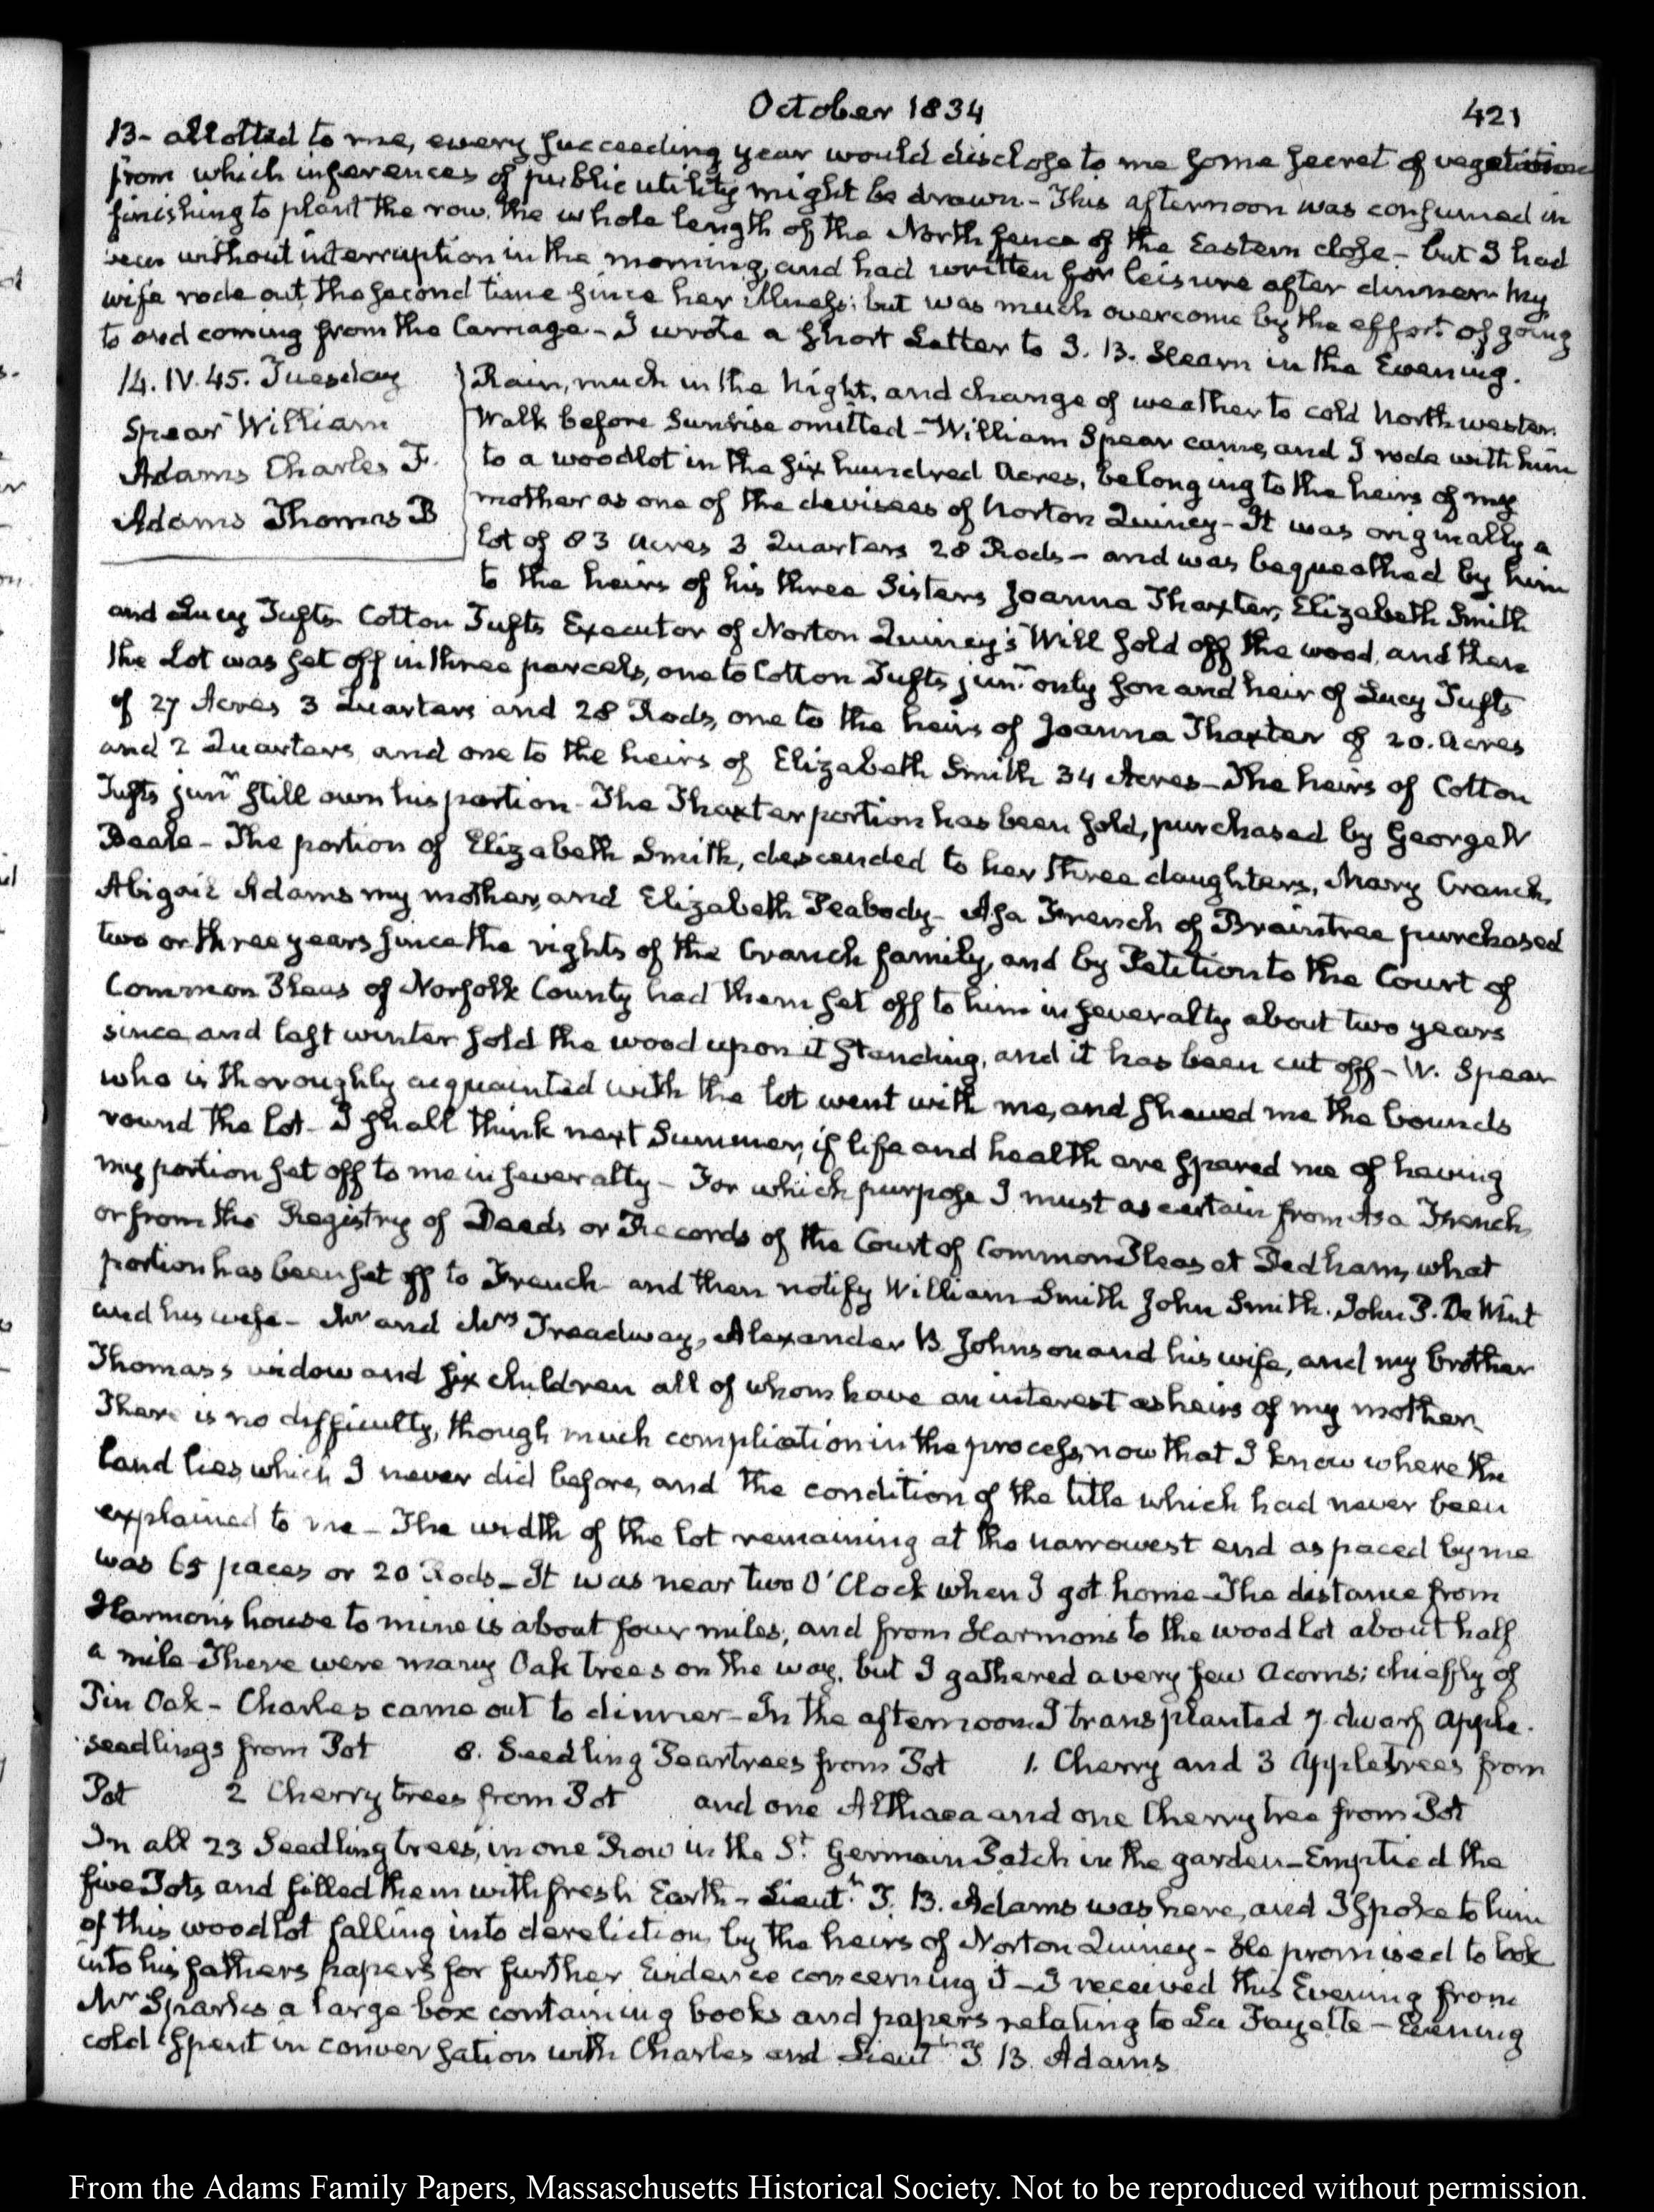 October 1834
421
13- allotted to me, every succeeding year would disclose to me some secret of vegetation
from which inferences of public utility might be drawn - This afternoon was consumed in
finishing to plant the row, the whole length of the North fence of the Eastern close - but I had
been without interruption in the morning, and had written for leisure after dinner. My
wife rode out, the second time since her illness; but was much overcome by the effort of going
to and coming from the Carriage - I wrote a short Letter to I. B. Stearn in the Evening.
14. IV. 45. Tuesday
Spear William
Adams Charles F.
Adams Thomas B
Rain, much in the Night, and change of weather to cold North wester.
Walk before Sunrise omitted - William Spear came, and I rode with him
to a woodlot in the six hundred Acres, belonging to the heirs of my
mother as one of the devisees of Norton Quincy - It was originally a
Lot of 83 Acres 3 Quarters 28 Rods - and was bequeathed by him
to the heirs of his three Sisters Joanna Thaxter, Elizabeth Smith
and Lucy Tufts. Cotton Tufts Executor of Norton Quincy's Will sold off the wood, and then
the Lot was set off in three parcels, one to Cotton Tufts junr. only son and heir of Lucy Tufts
of 27 Acres 3 Quarters and 28 Rods, one to the heirs of Joanna Thaxter of 20. Acres
and 2 Quarters and one to the heirs of Elizabeth Smith 34 Acres - The heirs of Cotton
Tufts junr still own his portion - The Thaxter portion has been sold, purchased by George W
Beale - The portion of Elizabeth Smith, descended to her three daughters, Mary Cranch,
Abigail Adams my mother, and Elizabeth Peabody - Asa French of Braintree purchased
two or three years since the rights of the Cranch family, and by Petition to the Court of
Common Pleas of Norfolk County had them set off to him in severalty about two years
since and last winter sold the wood upon it standing, and it has been cut off - W. Spear
who is thoroughly acquainted with the lot went with me, and shewed me the bounds
round the lot - I shall think next Summer, if life and health are spared me of having
my portion set off to me in severalty - For which purpose I must ascertain from Asa French,
or from the Registry of Deeds or Records of the Court of Common Pleas at Dedham, what
portion has been set off to French and then notify William Smith John Smith. John P. De Wint
and his wife - Mr and Mrs Treadway, Alexander B. Johnson and his wife, and my brother
Thomas s widow and six children all of whom have an interest as heirs of my mother.
There is no difficulty, though much complication in the process, now that I know where the
land lies, which I never did before, and the condition of the title which had never been
explained to me - The width of the lot remaining at the narrowest end as paced by me
was 65 paces or 20 Rods - It was near two O'Clock when I got home - The distance from
Harmon's house to mine is about four miles; and from Harmons to the wood lot about half
a mile - There were many Oak trees on the way, but I gathered a very few Acorns; chiefly of
Pin Oak - Charles came out to dinner - In the afternoon I transplanted 7. dwarf apple.
seedlings from Pot 8. Seedling Peartrees from Pot 1. Cherry and 3 Appletrees from
Pot 2 Cherry trees from Pot and one Althaea and one Cherry tree from Pot
In all 23 Seedling trees, in one Row in the St. Germain Patch in the garden - Emptied the
five Pots, and filled them with fresh Earth - Lieutt. T. B. Adams was here, and I spoke to him
of this woodlot falling into dereliction by the heirs of Norton Quincy - He promised to look
into his fathers papers for further Evidence concerning it - I received this Evening from
Mr Sparks a large box containing books and papers relating to La Fayette - Evening
cold Spent in conversation with Charles and Lieutt T. B. Adams
From the Adams Family Papers, Massachusetts Historical Society. Not to be reproduced without permission.